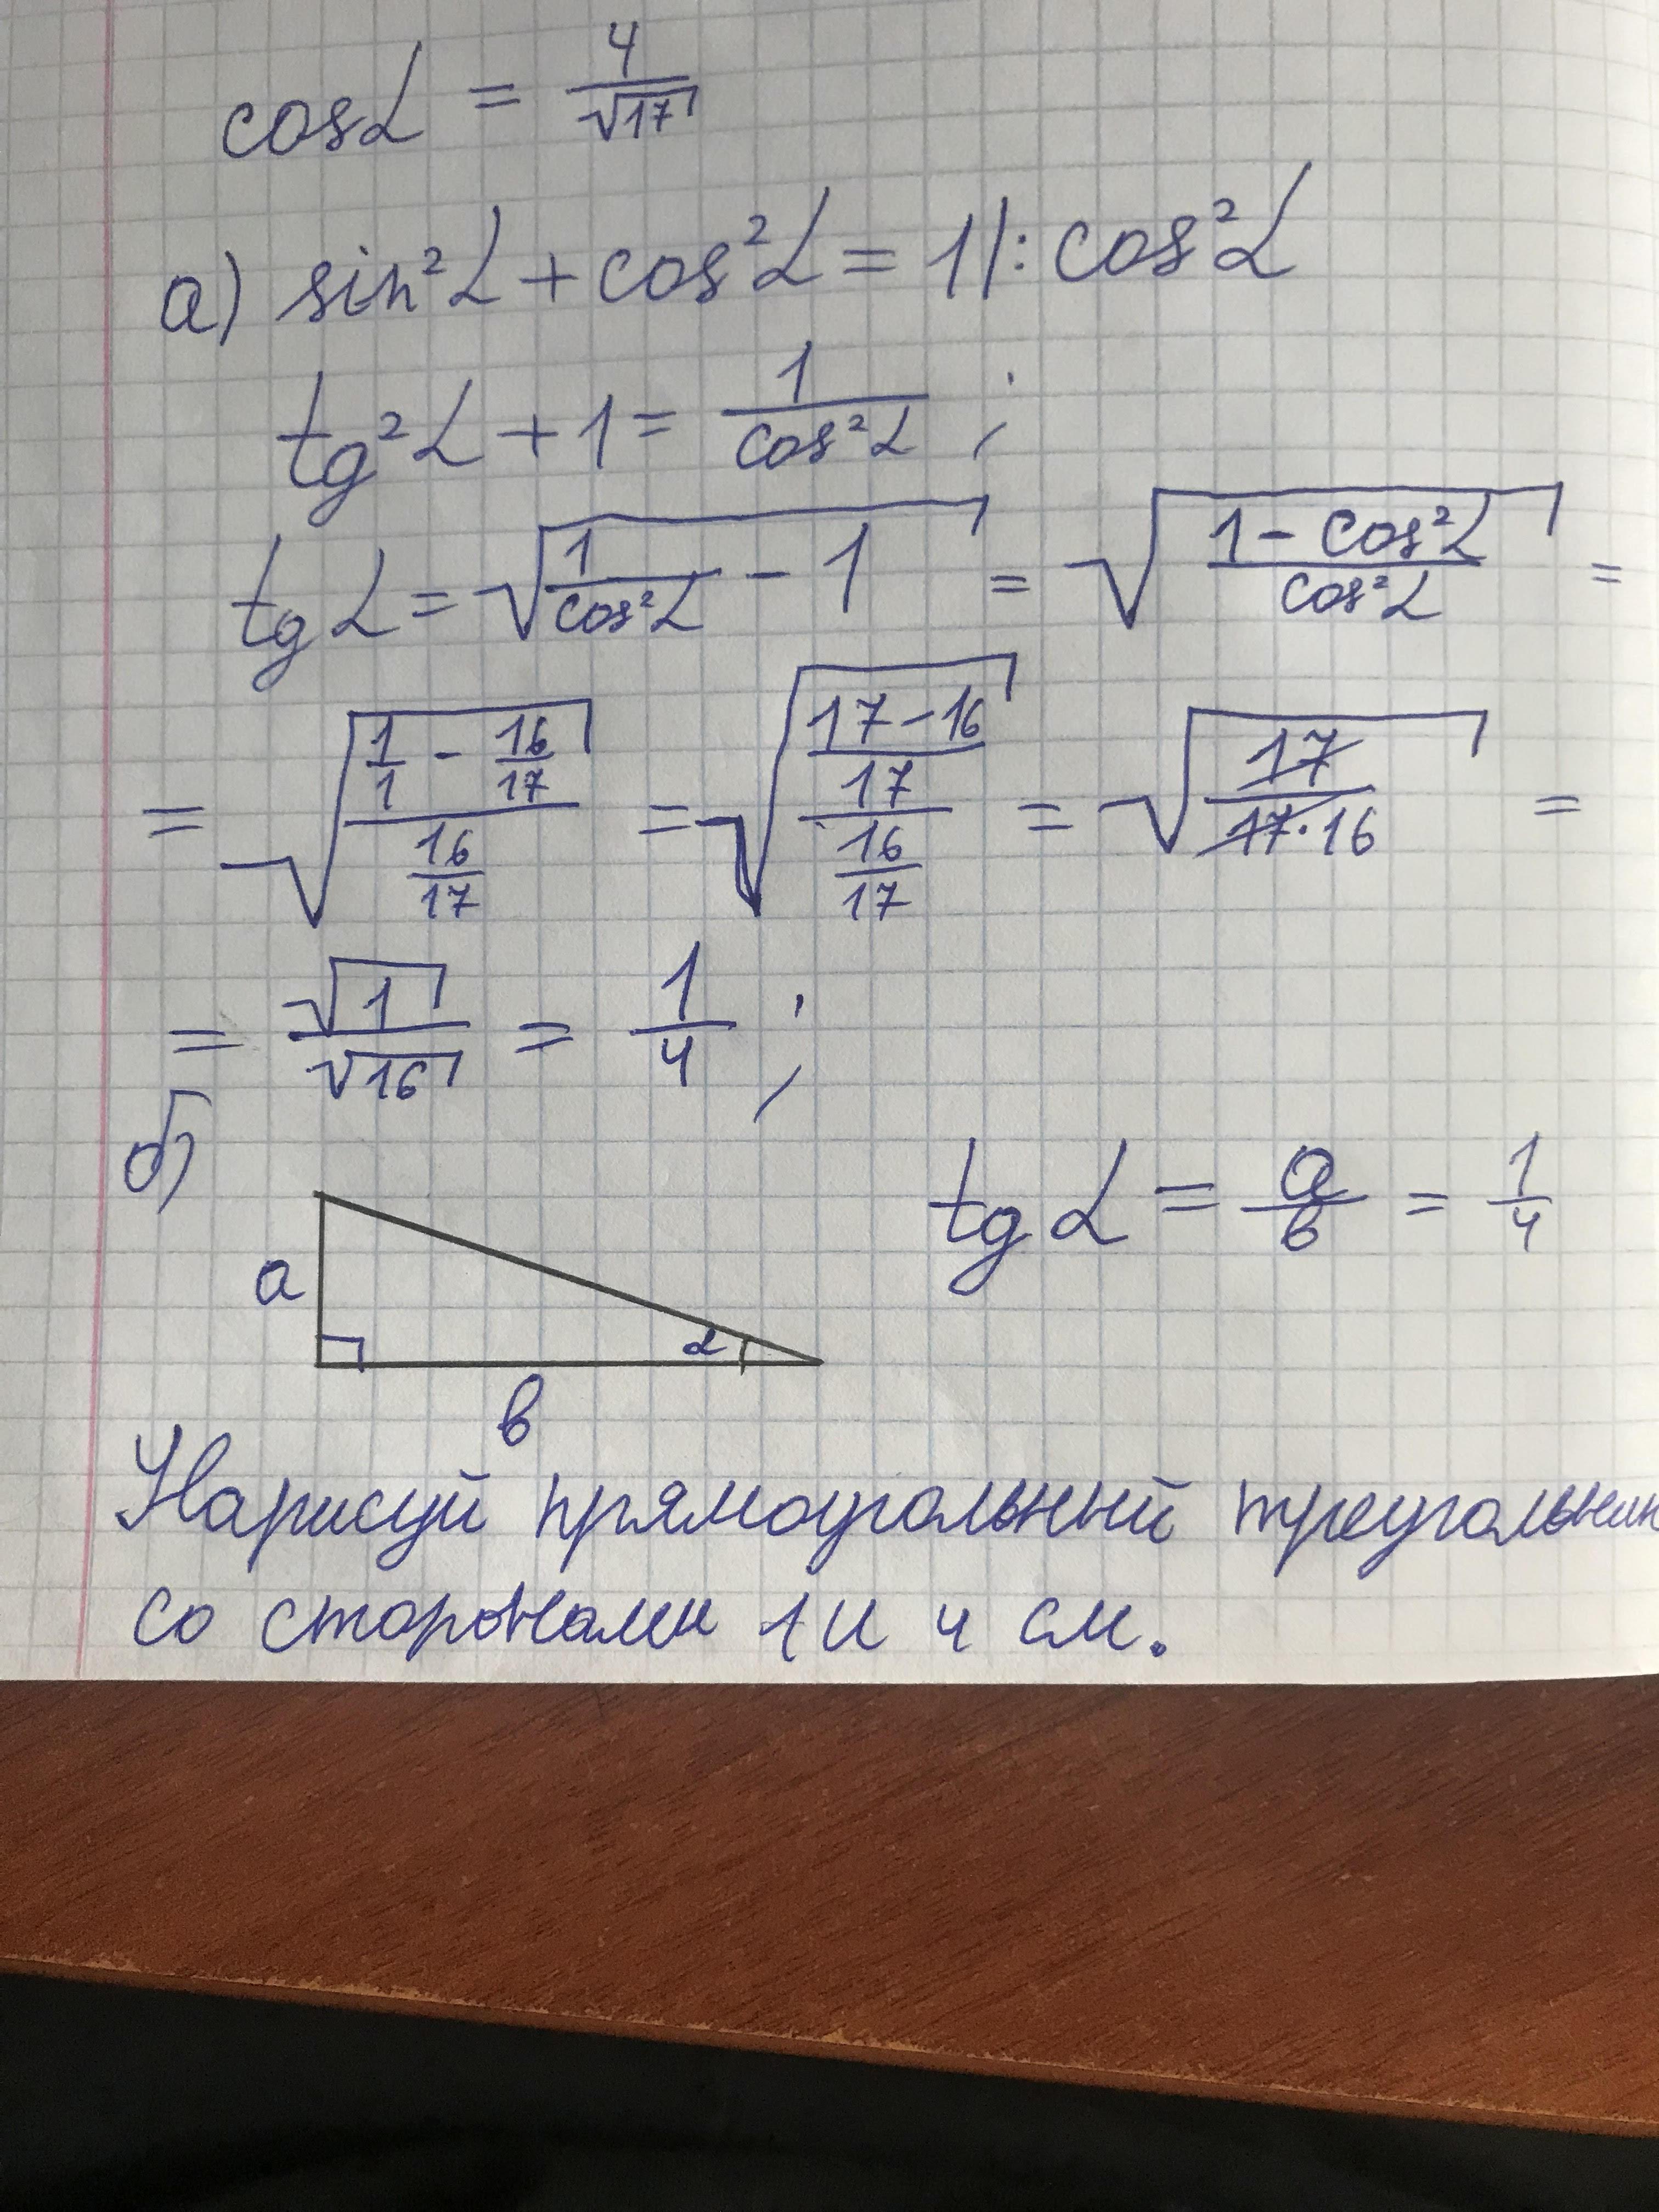 cosα = 4/√17
а) sin²α + cos²α = 1 |: cos²α
tg²α + 1 = 1/cos²α ;
tgα = √(1/cos²α - 1) = √((1 - cos²α)/cos²α) =
= √((1/1 - 16/17)/(16/17)) = √(((17-16)/17)/(16/17)) = √(17/(17·16)) =
= √1/√16 = 1/4 ;
б)
tgα = a/b = 1/4
a
α
b
Нарисуй прямоугольный треугольник
со сторонами 1 и 4 см.